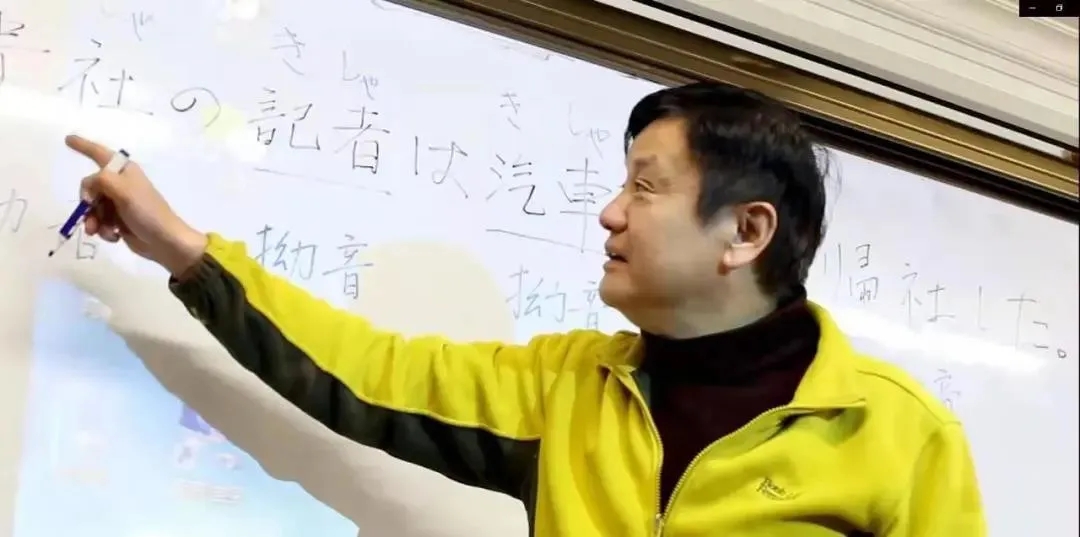 ゃ きしゃ きしゃ
社の記者は汽車 帰社した。
拗音 拗音